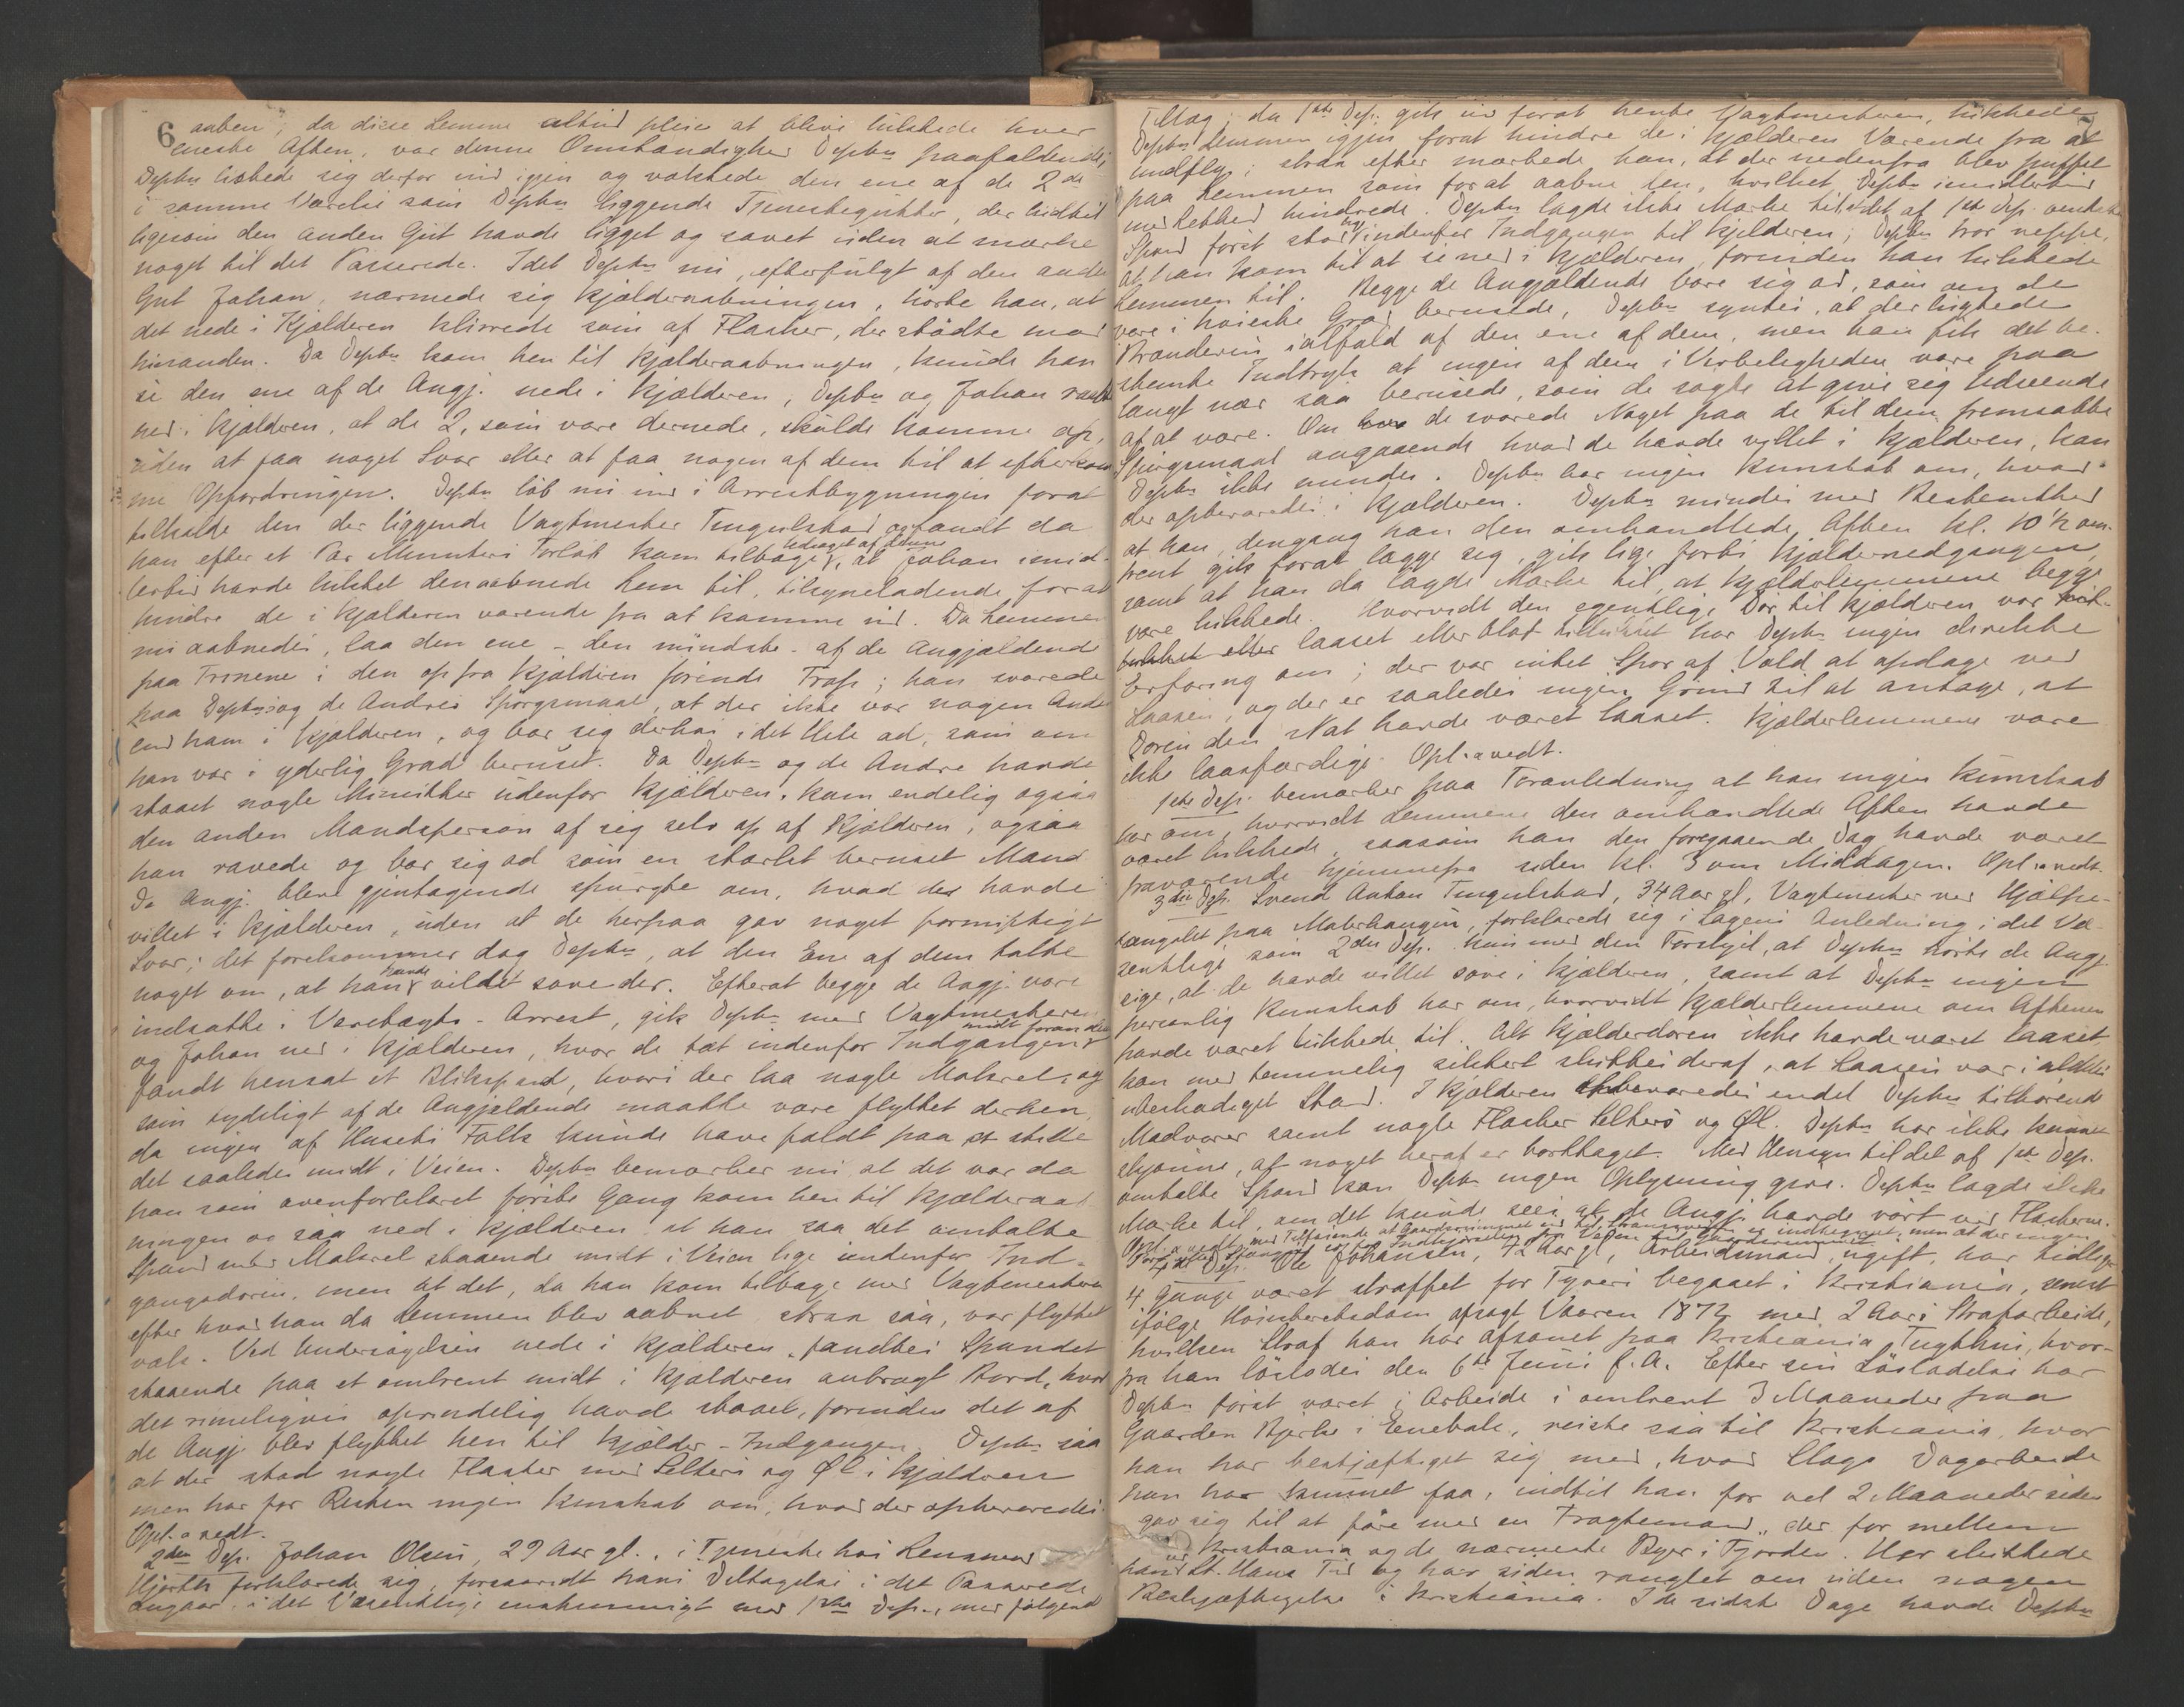 6
aaben; da disse Lemme altid pleie at blive lukkede hver
eneste Aften, var denne Omstændighed Depten paafaldende;
Depten listede sig derfor ind igjen og vækkede den ene af de 2de
i samme Værelse som Depten liggende Tjenestegutter, der hidtil
ligesom den anden Gut havde ligget og sovet uden at mærke
noget til det Passerede. Idet Depten nu, efterfulgt af den anden
Gut Johan, nærmede sig Kjælderaabningen, hørte han, at
det nede i Kjælderen klirrede som af Flasker, der stødte mod
hinanden. Da Depten kom hen til Kjælderaabningen, kunde han
se den ene af de Angj. nede i Kjælderen; Depten og Johan raabte
ned i Kjælderen, at de 2, som vare dernede, skulde komme op,
uden at faa noget Svar eller at faa nogen af dem til at efterkom-
me Opfordringen. Depten løb nu ind i Arrestbygningen forat
tilkalde den der liggende Vagtmester Tingulstad og fandt da
han efter et Par Minutters Forløb kom tilbage ledsaget af denne, at Johan imid-
lertid havde lukket den aabnede Lem til, tilsyneladende forat
hindre de i Kjælderen værende fra at komme ud. Da Lemmen
nu aabnedes, laa den ene - den mindste - af de Angjældende
paa Trinene i den op fra Kjælderen førende Trap; han svarede
paa Deptens og de Andres Spørgsmaal, at der ikke var nogen Anden
end ham i Kjælderen, og bar sig derhos i det Hele ad, som om
han var i yderlig Grad beruset. Da Depten og de Andre havde
staaet nogle Minutter udenfor Kjælderen, kom endelig ogsaa
den anden Mandsperson af sig selv op af Kjælderen, ogsaa
han ravede og bar sig ad som en stærkt beruset Mand
De Angj. bleve gjentagende spurgte om, hvad de havde
villet i Kjælderen, uden at de herpaa gav noget fornuftigt
Svar; det forekommer dog Depten, at den Ene af dem talte
noget om, at han havde villet sove der. Efterat begge de Angj. vare
indsatte i Varetægts-Arrest, gik Depten med Vagtmesteren
og Johan ned i Kjælderen, hvor de tæt indenfor Indgangen midt foran den
fandt hensat et Blikspand, hvori der laa nogle Makrel, og
som tydeligt af de Angjældende maatte være flyttet derhen,
da ingen af Husets Folk kunde have faldt paa at stille
det saaledes midt i Veien. Depten bemærker nu at det var da
han som ovenforklaret første Gang kom hen til Kjælderaab-
ningen og saa ned i Kjælderen at han saa det omtalte
Spand med Makrel staaende midt i Veien lige indenfor Ind-
gangsdøren, men at det, da han kom tilbage med Vagtmesteren
efter hvad han da Lemmen blev aabnet strax saa, var flyttet
væk. Ved Undersøgelsen nede i Kjælderen, fandtes Spandet
staaende paa et omtrent midt i Kjælderen anbragt Bord, hvor
det rimeligvis oprindelig havde staaet, førinden det af
de Angj. blev flyttet hen til Kjælder-Indgangen. Depten saa
at der stod nogle Flasker med Selters og Øl i Kjælderen
men har for Resten ingen Kundskab om, hvad der opbevaredes.
Opl. o vedt.
2den Dep. Johan Olsen, 29 Aar gl., i Tjeneste hos Lensmand
Hjorth forklarede sig, forsaavidt hans Deltagelse i det Passerede
angaar, i det Væsentlige enstemmigt med 1ste Dep., med følgende
Tillæg; da 1ste Dep. gik ind forat hente Vagtmesteren, lukkede
Depten Lemmen igjen forat hindre de i Kjælderen Værende fra at
undfly; strax efter mærkede han, at der nedenfra blev puffet
paa Lemmen som forat aabne den, hvilket Depten imidlertid
med Lethed hindrede. Depten lagde ikke Mærke til, at det af 1ste Dep. omtalte
Spand først stod indenfor Indgangen til Kjælderen; Depten tror neppe,
at han kom til at se ned i Kjælderen, forinden han lukkede
Lemmen til. Begge de Angjældende bare sig ad, som om de
vare i høieste Grad berusede, Depten syntes, at der lugtede
Brændevin ialfald af den ene af dem, men han fik det be-
stemte Indtryk at ingen af dem i Virkeligheden vare paa
langt nær saa berusede, som de søgte at give sig Udseende
af at være. Om de svarede Noget paa de til dem fremsatte
Spørgsmaal angaaende hvad de havde villet i Kjælderen, kan
Depten ikke mindes. Depten har ingen Kundskab om, hvad
der opbevaredes i Kjælderen. Depten mindes med Bestemthed
at han, dengang han den omhandlede Aften kl. 10½ om-
trent gik forat lægge sig, gik lige forbi Kjældernedgangen,
samt at han da lagde Mærke til, at Kjælderlemmene begge
vare lukkede. Hvorvidt den egentlige Dør til Kjælderen var
laaset eller blot tillukket har Depten ingen direkte
Erfaring om; der var intet Spor af Vold at opdage ved
Laasen, og der er saaledes ingen Grund til at antage, at
Døren den Nat havde været laaset. Kjælderlemmene vare
ikke laasfærdige. Opl. o vedt.
1ste Dep. bemærker paa Foranledning at han ingen Kundskab
har om, hvorvidt Lemmene den omhandlede Aften havde
været lukkede, saasom han den foregaaende Dag havde været
fraværende hjemmefra siden kl. 3 om Middagen. Opl. o vedt.
3die Dep. Svend Anton Tingulstad, 34 Aar gl., Vagtmester ved Hjælpe-
fængslet paa Materhaugen, forklarede sig i Sagens Anledning i det Væ-
sentlige som 2den Dep. kun med den Forskjel, at Depten hørte de Angj.
sige, at de havde villet sove i Kjælderen, samt at Depten ingen
personlig Kundskab har om, hvorvidt Kjælderlemmene om Aftenen
havde været lukkede til. At Kjælderdøren ikke havde været laaset
kan med temmelig sikkert sluttes deraf, at Laasen var i aldeles
ubeskadiget Stand. I Kjælderen opbevaredes endel Depten tilhørende
Madvarer samt nogle Flasker Selters og Øl. Depten har ikke kunnet
skjønne, at noget heraf er borttaget. Med Hensyn til det af 1ste Dep.
omtalte Spand kan Depten ingen Oplysning give. Depten lagde ikke
Mærke til, om det kunde sees, at de Angj. havde rørt ved Flaskerne.
Opl. o vedt. med Tilføiende at Gaardsrummet
4de Dep. Ole Johansen, 42 Aar gl., Arbeidsmand, ugift, har tidligere
4 Gange været straffet for Tyveri begaaet i Kristiania, senest
ifølge Høiesteretsdom afsagt Vaaren 1872 med 2 Aars Strafarbeide,
hvilken Straf han har afsonet paa Kristiania Tugthus, hvor-
fra han løslodes den 6te Juni f. A. Efter sin Løsladelse har
Depten først været i Arbeide i omtrent 3 Maaneder paa
Gaarden Bjerke i Enebak, reiste saa til Kristiania, hvor
han har beskjæftiget sig med, hvad Slags Dagarbeide
han har kunnet faa, indtil han for vel 2 Maaneder siden
gav sig til at fare med en Fragtemand, der for mellem
Kristiania og de nærmeste Byer i Fjorden. Her sluttede
han ved St. Hans Tid og har siden ranglet om uden nogen
Beskjæftigelse i Kristiania. I de sidste Dage havde Depten